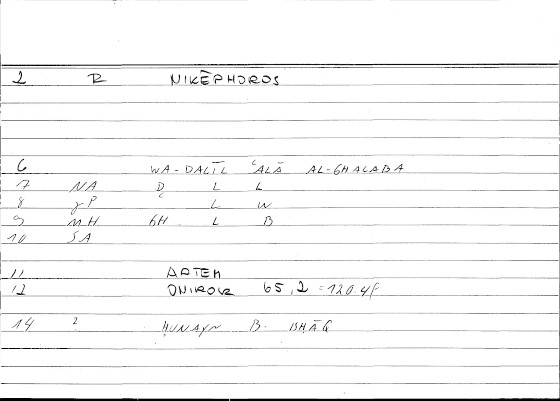 2 R NIKĒPHOROS
6 WA-DALĪL ʿALĀ AL-GHALABA
7 NA D L L
8 γP L W
9 MH GH L B
10 SA
11 ARTEM
12 ONIROCR 65,2 = 120.4f
14 ? ḤUNAYN B. ISḤĀQ